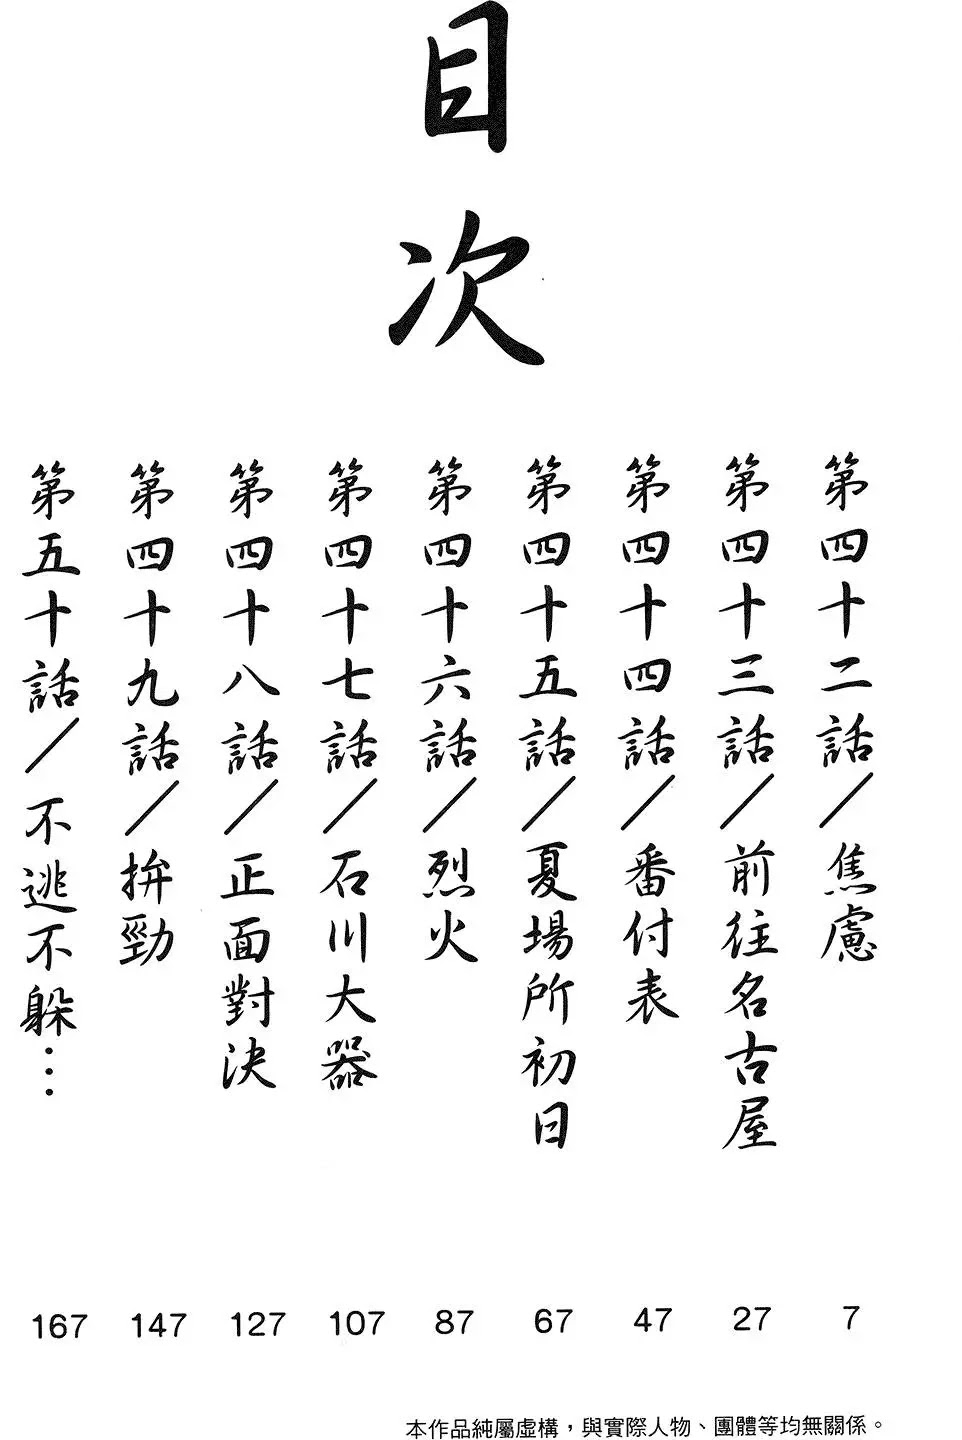 目次
第四十二話／焦慮 7
第四十三話／前往名古屋 27
第四十四話／番付表 47
第四十五話／夏場所初日 67
第四十六話／烈火 87
第四十七話／石川大器 107
第四十八話／正面對決 127
第四十九話／拚勁 147
第五十話／不逃不躲… 167
本作品純屬虛構，與實際人物、團體等均無關係。